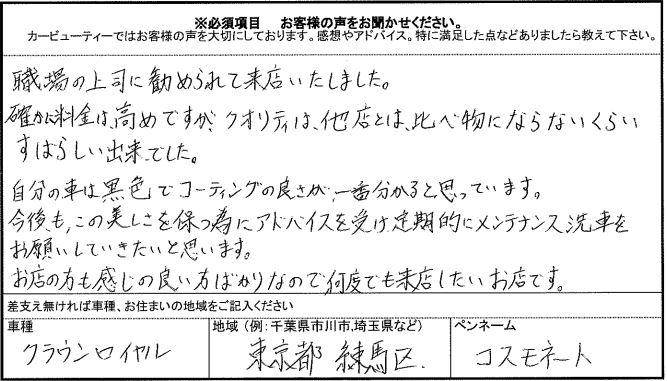 ※必須項目　お客様の声をお聞かせください。
カービューティーではお客様の声を大切にしております。感想やアドバイス。特に満足した点などありましたら教えて下さい。
職場の上司に勧められて来店いたしました。
確かに料金は、高めですが、クオリティは、他店とは、比べ物にならないくらい
すばらしい出来でした。
自分の車は黒色でコーティングの良さが、一番分かると思っています。
今後も、この美しさを保つ為にアドバイスを受け、定期的にメンテナンス洗車を
お願いしていきたいと思います。
お店の方も感じの良い方ばかりなので何度でも来店したいお店です。
差支え無ければ車種、お住まいの地域をご記入ください
車種　地域（例：千葉県市川市,埼玉県など）　ペンネーム
クラウンロイヤル　東京都 練馬区.　コスモネート